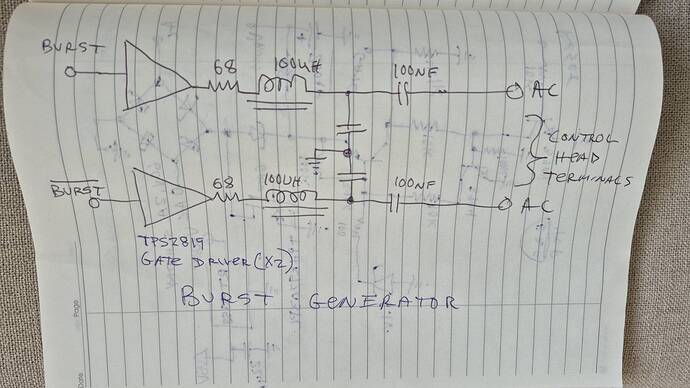 BURST
68
100UH
100NF
AC
CONTROL
HEAD
TERMINALS
BURST
68
100UH
100NF
AC
TPS2819
GATE DRIVER (X2)
BURST GENERATOR
Page
Date